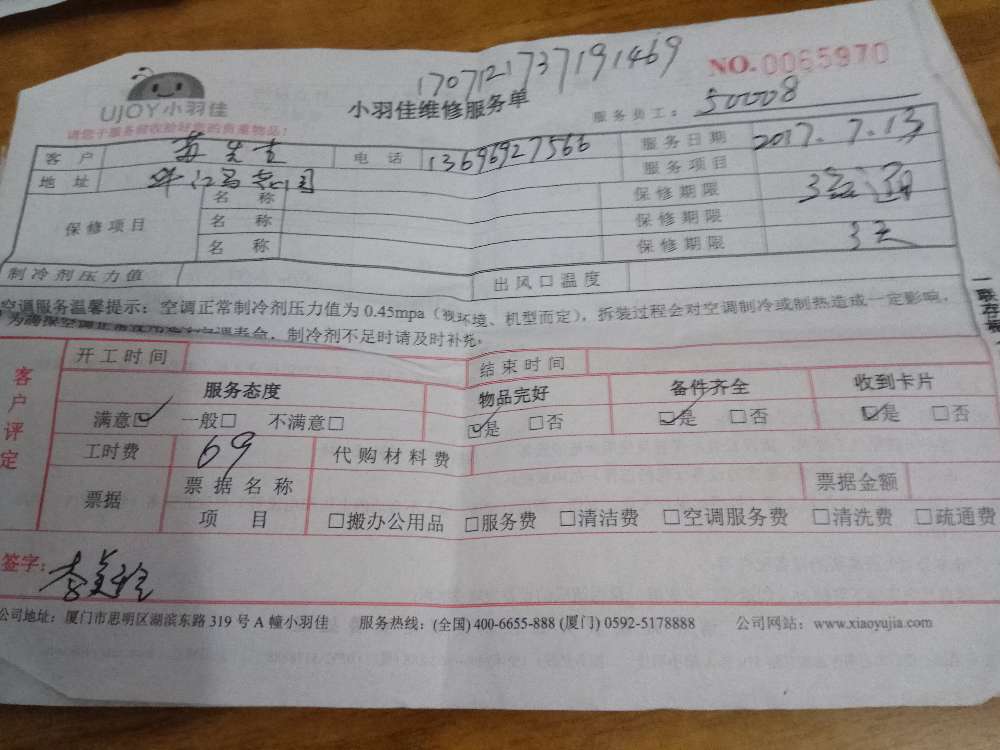 1707121737191469
NO.0065970
UJOY小羽佳
小羽佳维修服务单
服务员工：50008
请您于服务前收验好您的贵重物品！
客户 先生 电话 13696927566 服务日期 2017.7.13
地址 服务项目
保修项目 名称 保修期限
名称 保修期限
名称 保修期限 3天
制冷剂压力值 出风口温度
空调服务温馨提示：空调正常制冷剂压力值为0.45mpa（视环境、机型而定），拆装过程会对空调制冷或制热造成一定影响，
制冷剂不足时请及时补充。
一联存根
客户评定
开工时间 结束时间
服务态度 物品完好 备件齐全 收到卡片
满意☑ 一般□ 不满意□ ☑是 □否 ☑是 □否 ☑是 □否
工时费 69 代购材料费
票据 票据名称 票据金额
项目 □搬办公用品 □服务费 □清洁费 □空调服务费 □清洗费 □疏通费
签字：李美玲
公司地址：厦门市思明区湖滨东路319号A幢小羽佳 服务热线：(全国) 400-6655-888 (厦门) 0592-5178888 公司网站：www.xiaoyujia.com